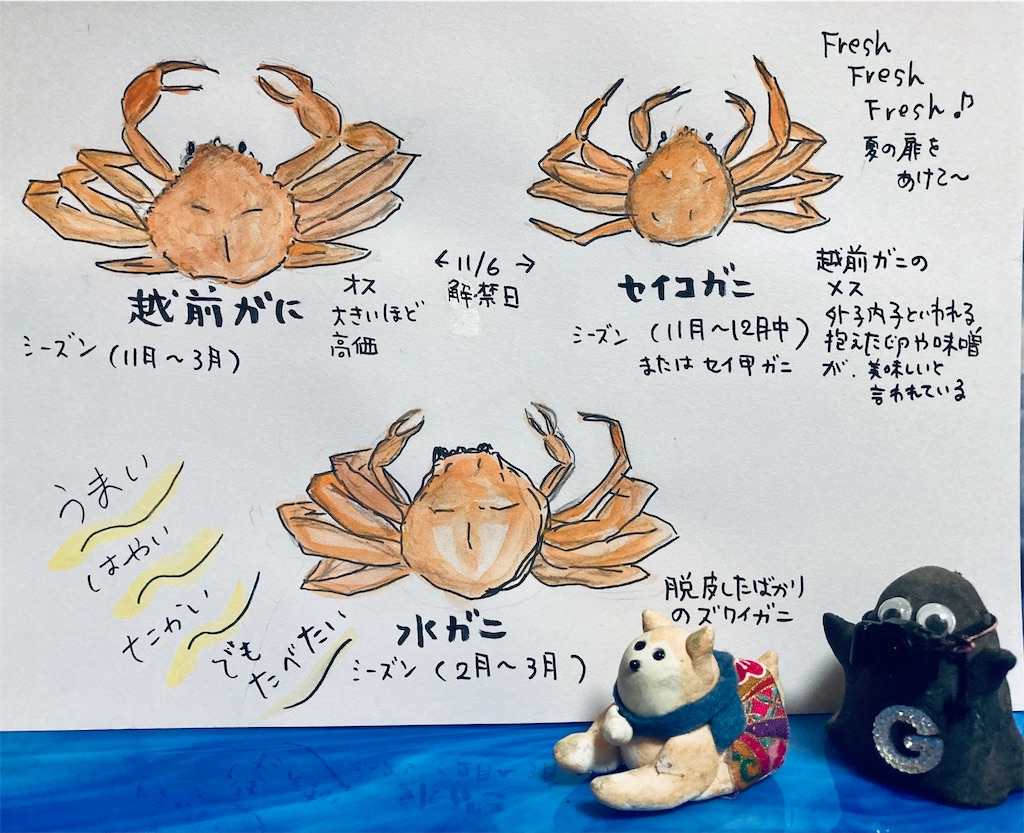 Fresh
Fresh
Fresh♪
夏の扉を
あけて〜
越前がに
シーズン (11月〜3月)
オス
大きいほど
高価
← 11/6 →
解禁日
セイコガニ
シーズン (11月〜12月中)
または セイ甲ガニ
越前ガニの
メス
外子内子といわれる
抱えた卵や味噌
が、美味しいと
言われている
うまい
はやい
たかい
でも
たべたい
水ガニ
シーズン (2月〜3月)
脱皮したばかり
のズワイガニ
G